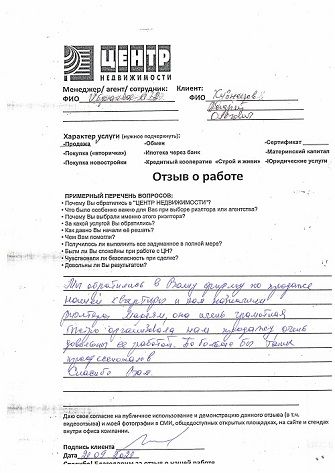 ЦЕНТР
НЕДВИЖИМОСТИ
Менеджер/ агент/ сотрудник: Клиент:
ФИО ФИО
Характер услуги (нужное подчеркнуть):
-Продажа -Обмен -Сертификат
-Покупка «вторичка» -Ипотека через банк -Материнский капитал
-Покупка новостройки -Кредитный кооператив «Строй и живи» -Юридические услуги
Отзыв о работе
ПРИМЕРНЫЙ ПЕРЕЧЕНЬ ВОПРОСОВ:
• Почему Вы обратились в "ЦЕНТР НЕДВИЖИМОСТИ"?
• Что было особенно важно для Вас при выборе риэлтора или агентства?
• Почему Вы выбрали именно этого риэлтора?
• За какой услугой Вы обратились?
• Как давно Вы начали её решать?
• Чем Вам помогли?
• Получилось ли выполнить все задуманное в полной мере?
• Были ли Вы спокойны при работе с ЦН?
• Чувствовали ли безопасность при сделке?
• Довольны ли Вы результатом?
Мы обратились в Вашу фирму по продаже
нашей квартиры и нам назначили
риэлтора она очень грамотная
организовала нам продажу очень
довольны её работой. Побольше бы таких
профессионалов
Спасибо Вам
Даю свое согласие на публичное использование и демонстрацию данного отзыва (в т.ч.
видеоотзыва) и моей фотографии в СМИ, общедоступных открытых площадках, на сайте и стендах
внутри офиса компании.
Подпись клиента
Дата
Спасибо! Благодарим за отзыв о нашей работе